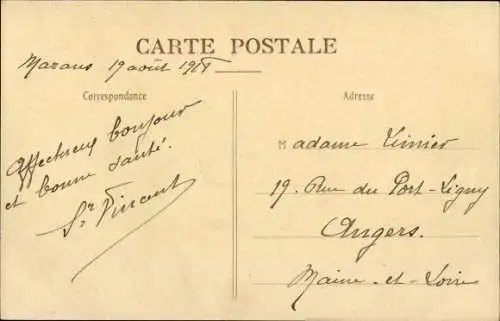 CARTE POSTALE
Marans 19 août 1918
Correspondance
Adresse
Affectueux bonjour
et bonne santé.
Sr Vincent
Madame Limier
19. Rue du Port-Ligny
Angers.
Maine-et-Loire